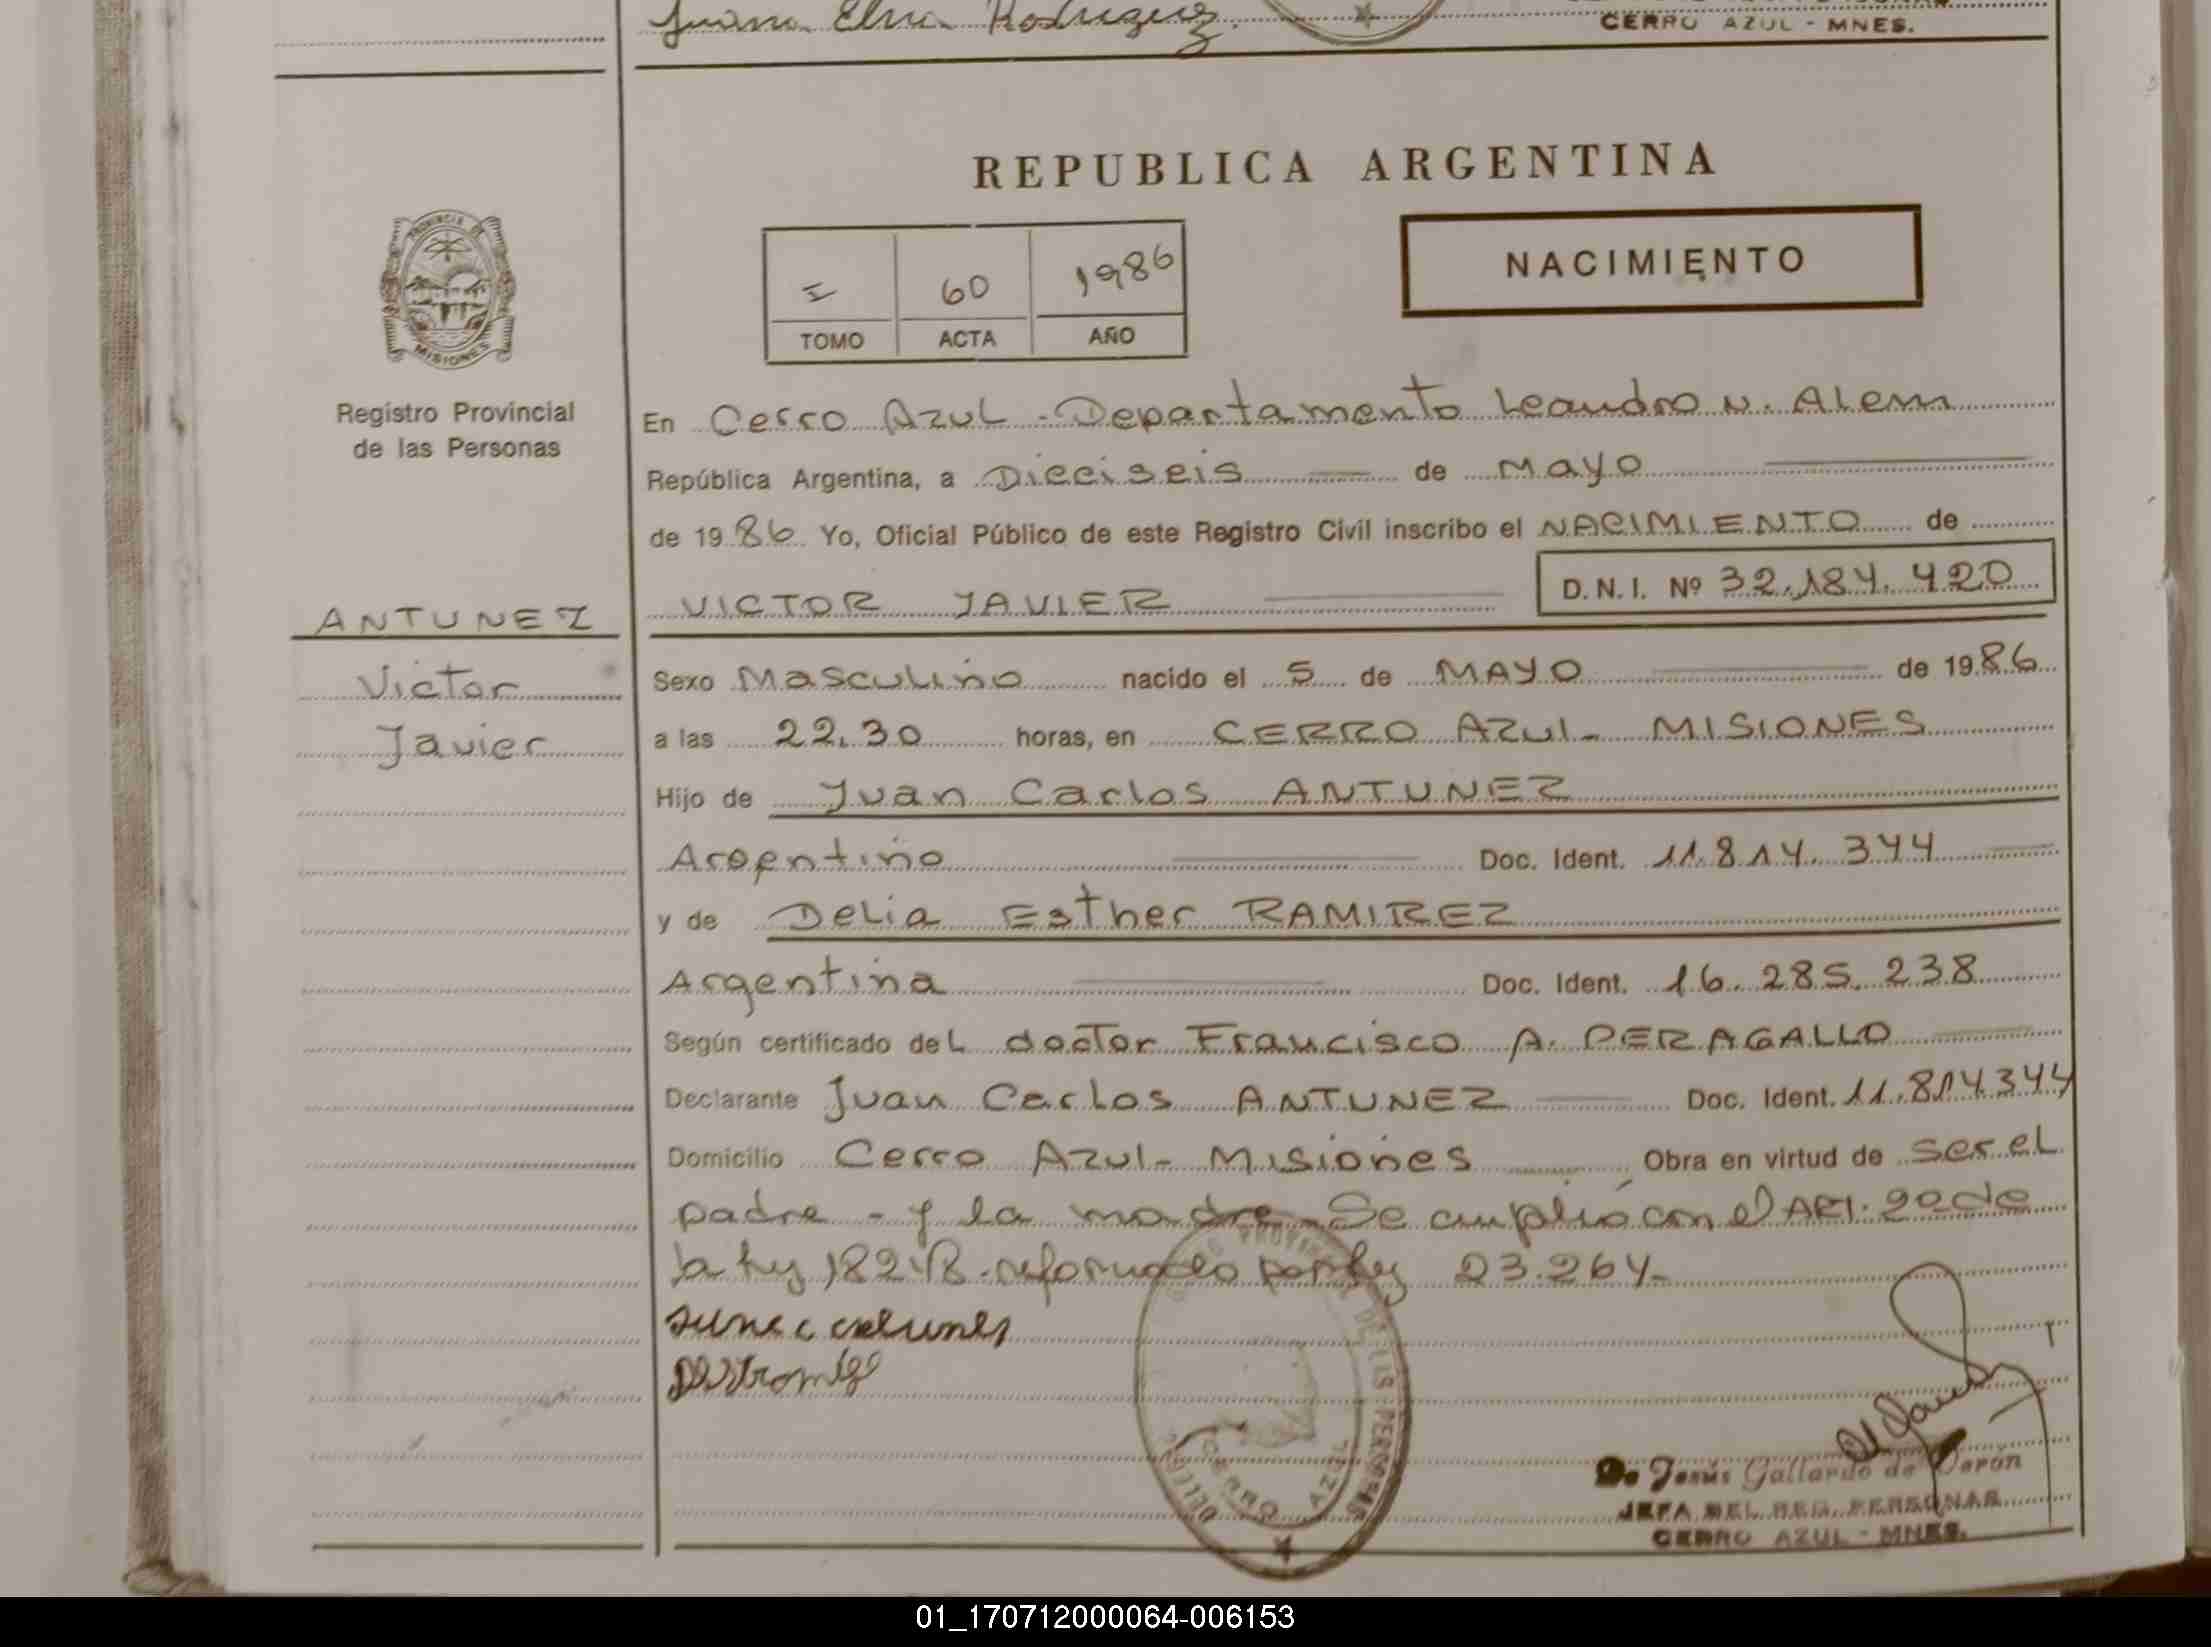 Juana Elva Rodriguez.
CERRO AZUL - MNES.
REPUBLICA ARGENTINA
PROVINCIA DE
MISIONES
Registro Provincial
de las Personas
I 60 1986
TOMO ACTA AÑO
NACIMIENTO
En Cerro Azul - Departamento Leandro N. Alem
República Argentina, a Dieciseis de Mayo
de 1986 Yo, Oficial Público de este Registro Civil inscribo el NACIMIENTO de
ANTUNEZ
VICTOR JAVIER
D. N. I. Nº 32.184.420
Victor
Javier
Sexo Masculino nacido el 5 de MAYO de 1986
a las 22.30 horas, en CERRO AZUL - MISIONES
Hijo de Juan Carlos ANTUNEZ
Argentino Doc. Ident. 11.814.344
y de Delia Esther RAMIREZ
Argentina Doc. Ident. 16.285.238
Según certificado del doctor Francisco A. PERAGALLO
Declarante Juan Carlos ANTUNEZ Doc. Ident. 11.814.344
Domicilio Cerro Azul - Misiones Obra en virtud de ser el
padre - y la madre. Se cumplió con el ART. 2º de
la ley 18248. reformado por ley 23.264-
PROVINCIAL DE LAS PERSONAS
CERRO AZUL
Jesús Gallardo de Terán
JEFA DEL REG. PERSONAS
CERRO AZUL - MNES.
01_170712000064-006153